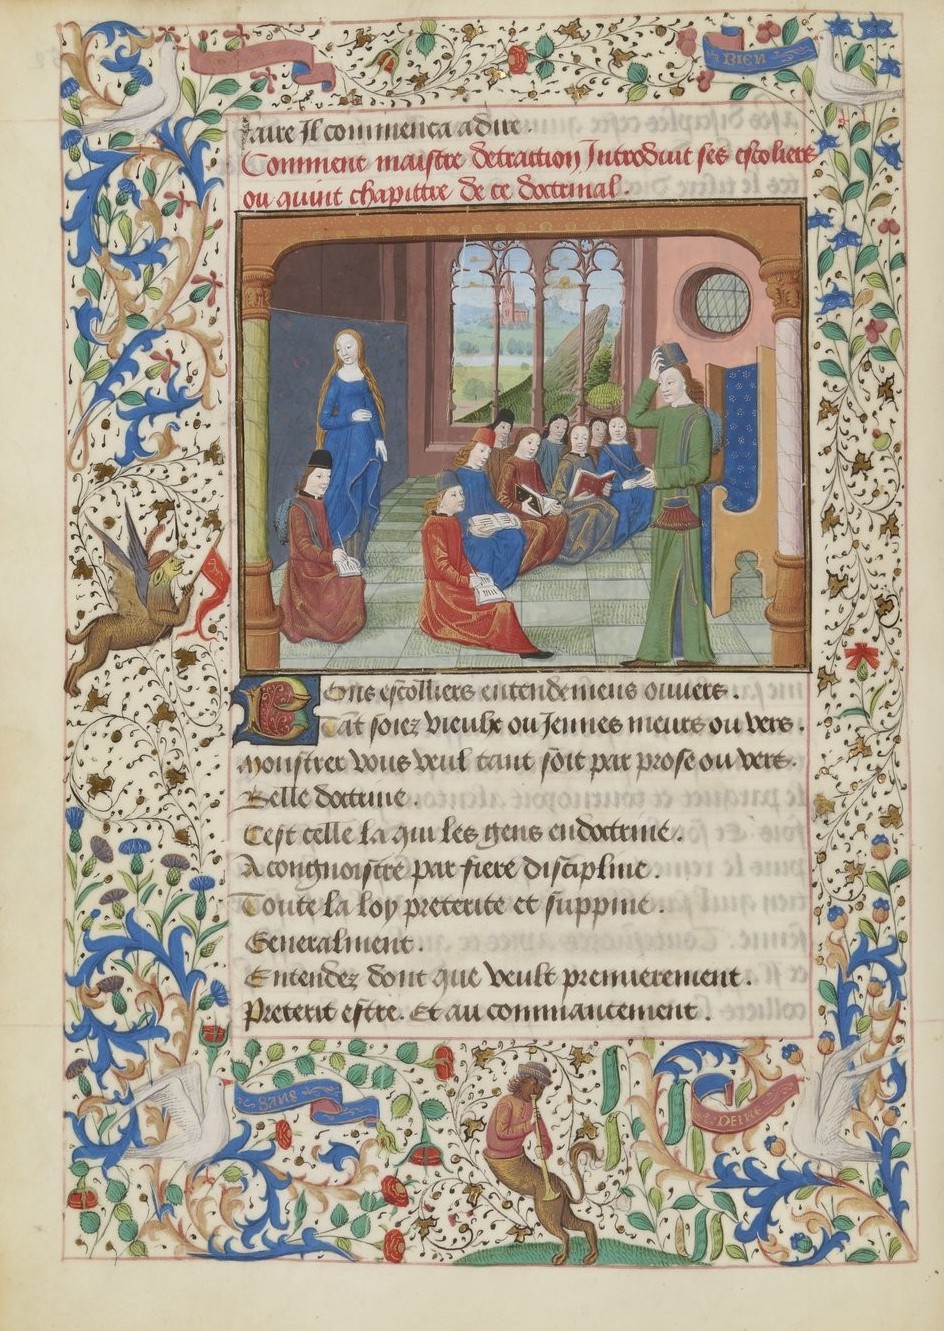 BIEN
faire Il commenca a dire.
Comment maistre detraction Introduit ses escoliers
ou quint chapittre de ce doctrinal.
Bons escolliers entendemens ouvers.
Tat soiez vieulx ou Jennes meurs ou vers.
Monstrer vous veul tant soit par prose ou vers.
Belle doctrine.
Cest celle la qui les gens endoctrine.
A congnoistre par fiere discipline.
Toute la loy preterite et suppine.
Generalment.
Entendez dont que veult premierement.
Preterit estre. Et au commancement.
SANS